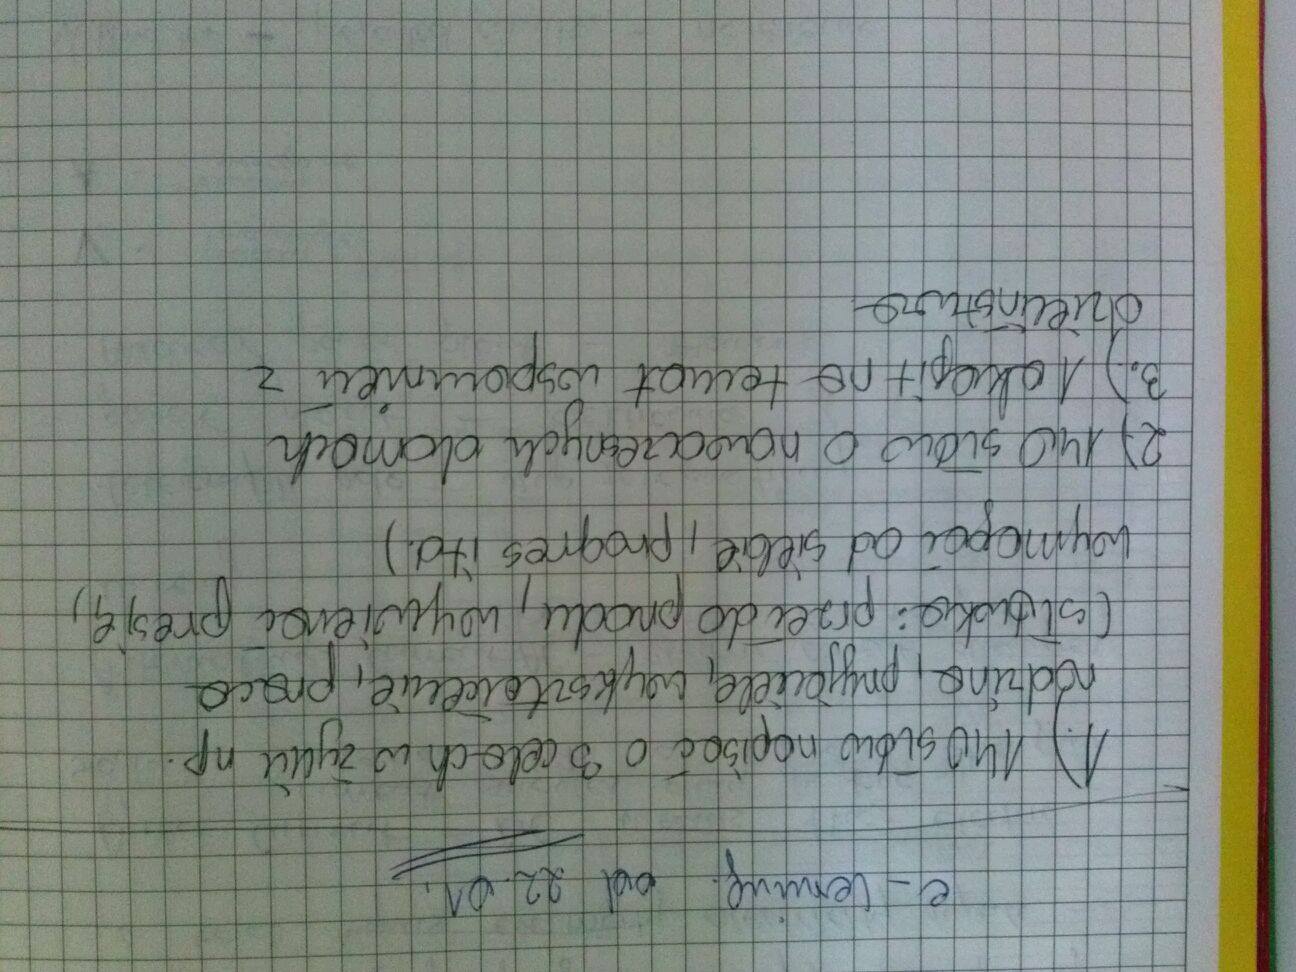 e-lerning. od 22.01.
1.) 140 słów napisać o 3 celach w życiu np.
rodzina, przyjaciele, wykształcenie, praca
(słówka: przeć do przodu, wywierać presję,
wymagać od siebie, progres itd.)
2) 140 słów o nowoczesnych domach
3.) 1 akapit na temat wspomnień z
dzieciństwa